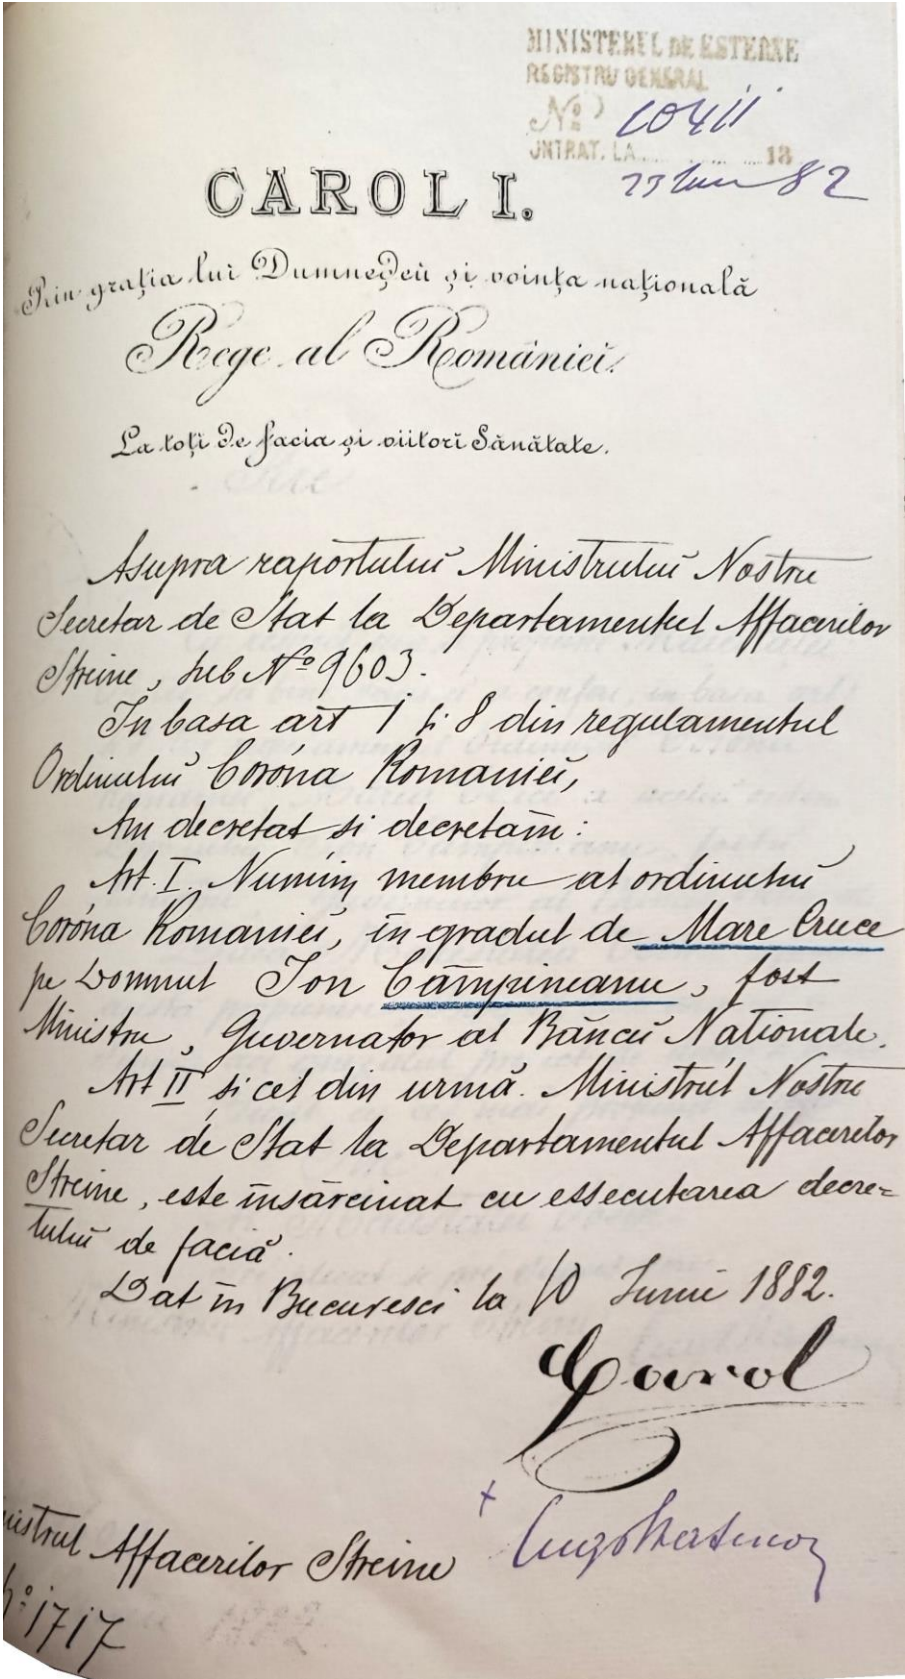 MINISTERUL DE ESTERNE
REGISTRU GENERAL
No 10411
INTRAT. LA 18
82
CAROL I.
Prin grația lui Dumnedeŭ și voința națională
Rege al României.
La toți de facia și viitorĭ Sănătate.
Asupra raportuluĭ Ministruluĭ Nostru
Secretar de Stat la Departamentul Affacerilor
Streine, sub No 9603.
In basa art I si 8 din regulamentul
Ordinuluĭ Coróna Romanieĭ,
Am decretat si decretăm:
Art. I. Numim membru al ordinuluĭ
Coróna Romanieĭ, în gradul de Mare Cruce
pe Domnul Ion Câmpineanu, fost
Ministru, Guvernator al Băncii Nationale.
Art II si cel din urmă. Ministrul Nostru
Secretar de Stat la Departamentul Affacerilor
Streine, este însărcinat cu essecutarea decre=
tuluĭ de facia.
Dat în Bucuresci la 10 Iunie 1882.
Carol
Affacerilor Streine
No 1717